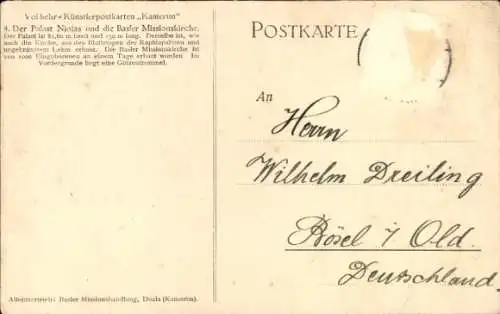 Vollbehr-Künstlerpostkarten „Kamerun"
4. Der Palast Njoias und die Basler Missionskirche.
Der Palast ist 81,80 m breit und 152 m lang. Derselbe ist, wie
auch die Kirche, aus den Blattrippen der Raphiapalmen und
ungebranntem Lehm erbaut. Die Basler Missionskirche ist
von 1000 Eingeborenen an einem Tage erbaut worden. Im
Vordergrunde liegt eine Götzentrommel.
Alleinvertrieb: Basler Missionshandlung, Duala (Kamerun).
POSTKARTE
An
Herrn
Wilhelm Dreiling
Bösel i/Old.
Deutschland.